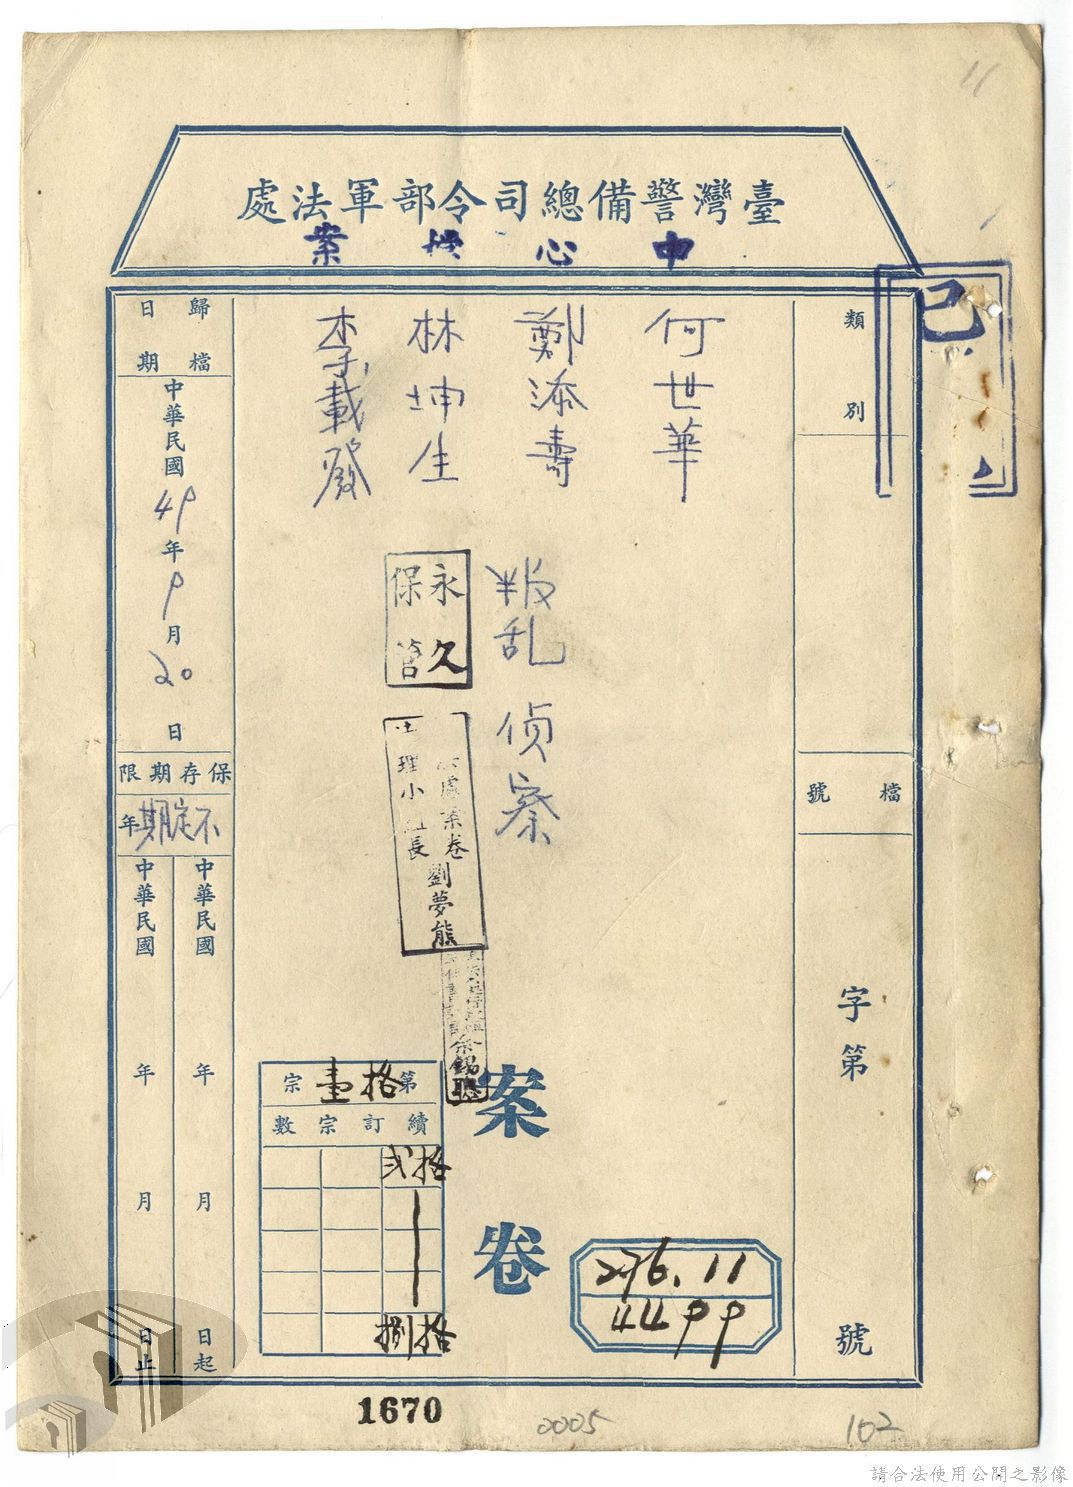 11
臺灣警備總司令部軍法處
中心檔案
已
類別
檔號
字第
號
何世華
鄭添壽
林坤生
李載發
叛乱 偵察
永久
保管
處案卷
理小組長
劉夢熊
余錫聰
案卷
第拾壹宗
續訂宗數
拾弍
拾捌
276.11
4499
歸檔日期
中華民國49年9月20日
保存期限
不定期年
中華民國 年 月 日起
中華民國 年 月 日止
1670
0005
102
請合法使用公開之影像